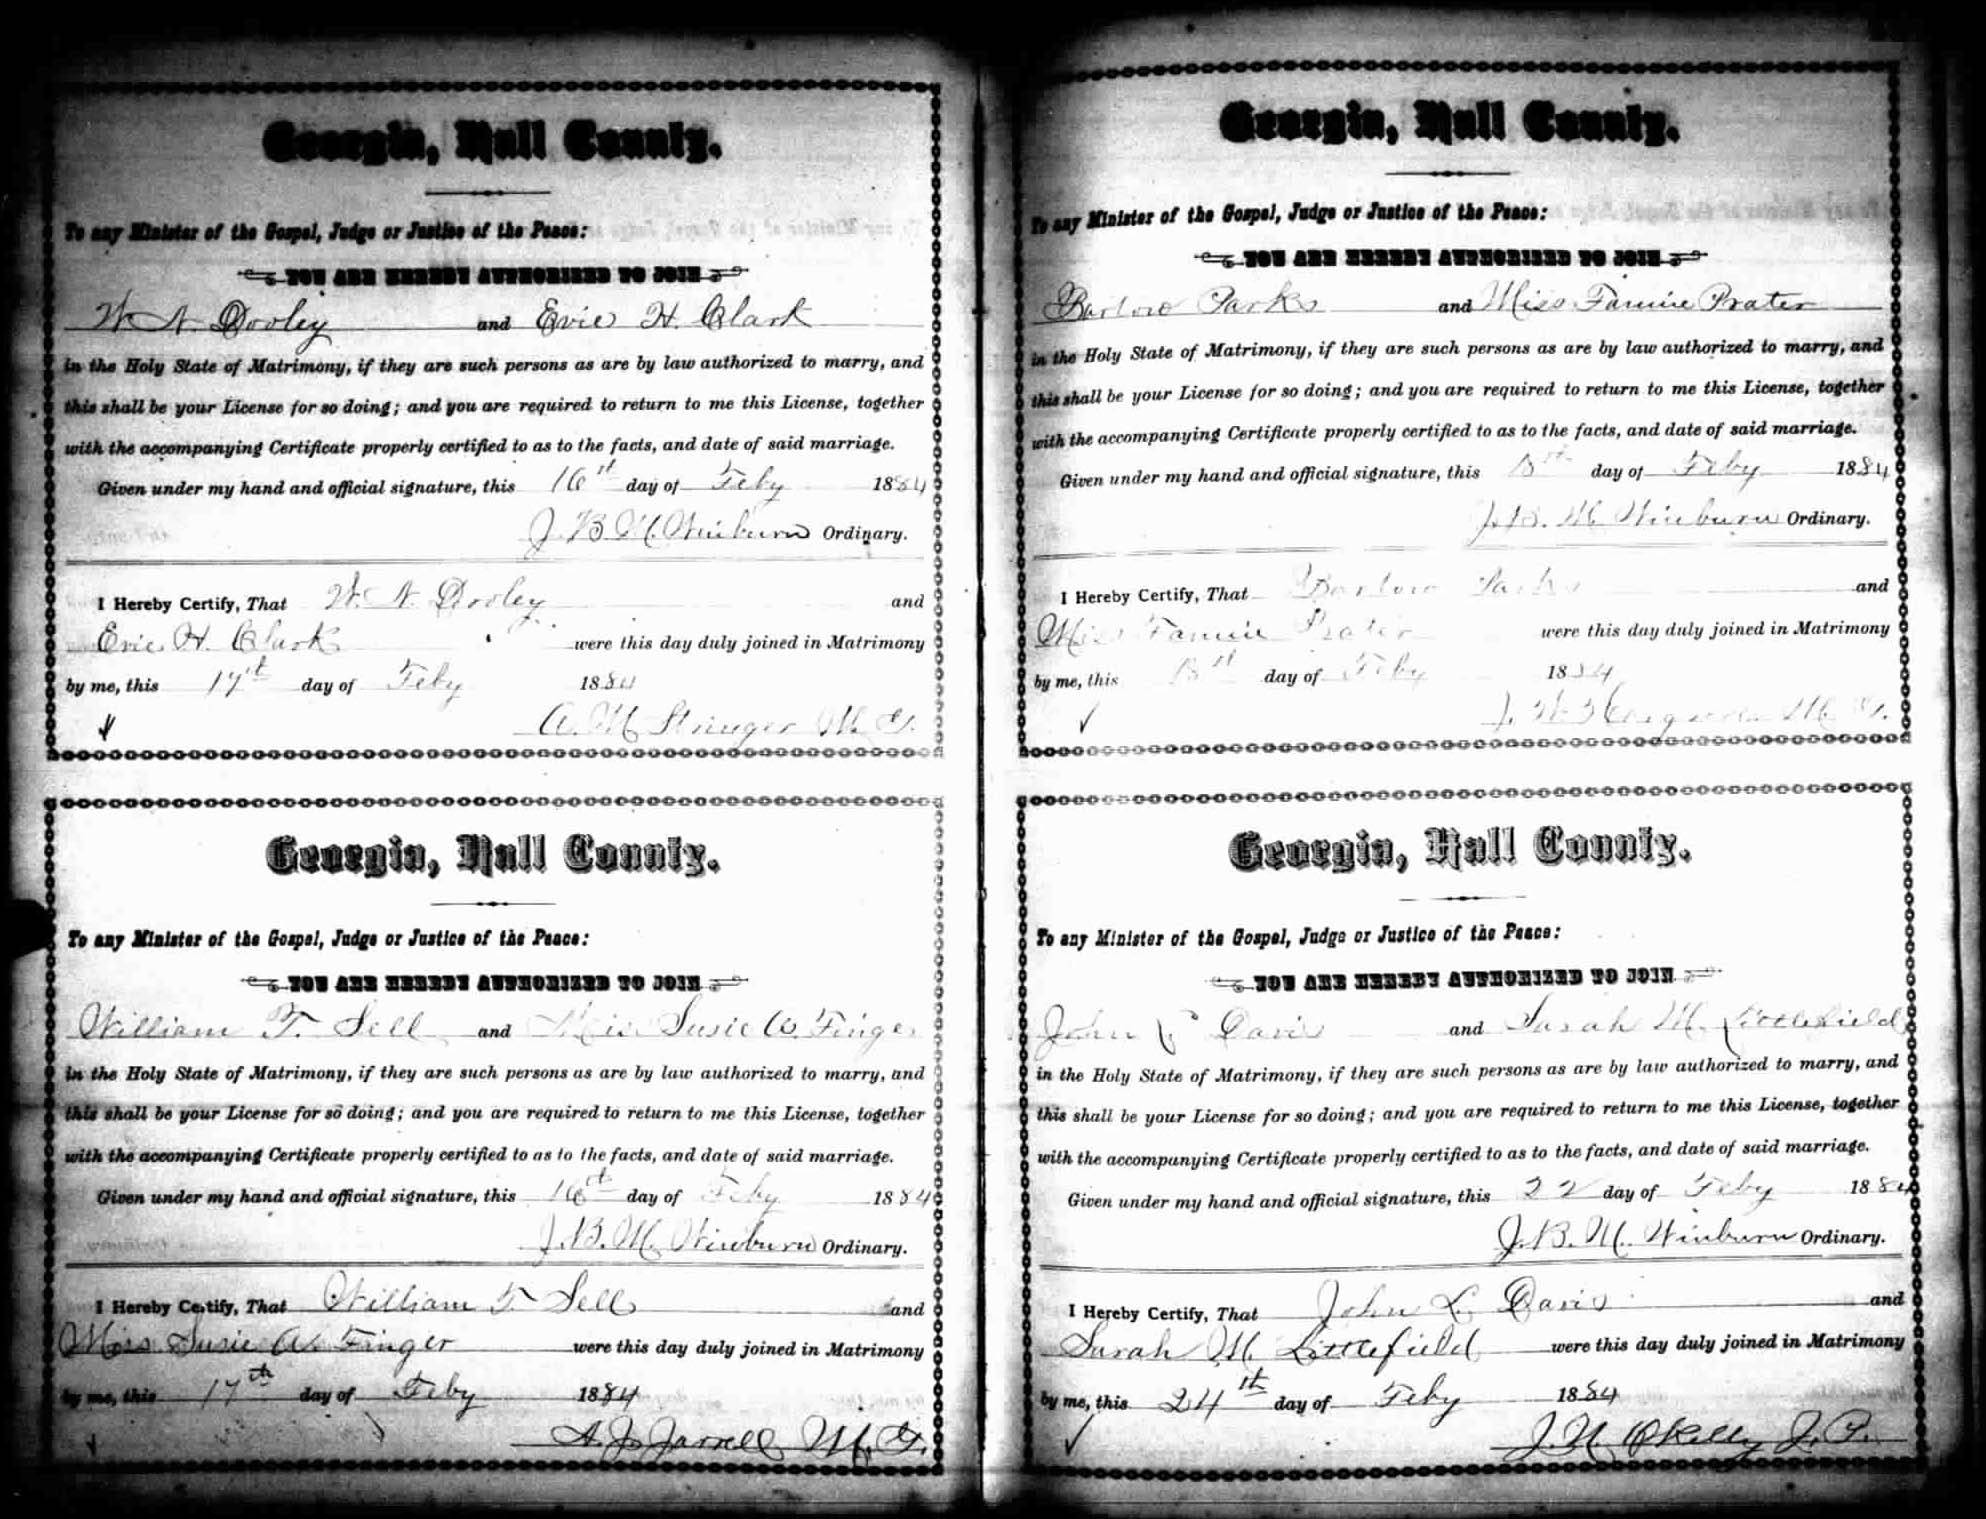 Georgia, Hall County.
To any Minister of the Gospel, Judge or Justice of the Peace:
YOU ARE HEREBY AUTHORIZED TO JOIN
W. N. Dooley and Evie H. Clark
in the Holy State of Matrimony, if they are such persons as are by law authorized to marry, and
this shall be your License for so doing; and you are required to return to me this License, together
with the accompanying Certificate properly certified to as to the facts, and date of said marriage.
Given under my hand and official signature, this 16th day of Feby 1884
J. B. M. Winburn Ordinary.
I Hereby Certify, That W. N. Dooley and
Evie H. Clark were this day duly joined in Matrimony
by me, this 17th day of Feby 1884
A. M. Stringer M. G.
Georgia, Hall County.
To any Minister of the Gospel, Judge or Justice of the Peace:
YOU ARE HEREBY AUTHORIZED TO JOIN
William T. Sell and Miss Susie A. Finger
in the Holy State of Matrimony, if they are such persons as are by law authorized to marry, and
this shall be your License for so doing; and you are required to return to me this License, together
with the accompanying Certificate properly certified to as to the facts, and date of said marriage.
Given under my hand and official signature, this 16th day of Feby 1884
J. B. M. Winburn Ordinary.
I Hereby Certify, That William T. Sell and
Miss Susie A. Finger were this day duly joined in Matrimony
by me, this 17th day of Feby 1884
A. J. Jarrell M. G.
Georgia, Hall County.
To any Minister of the Gospel, Judge or Justice of the Peace:
YOU ARE HEREBY AUTHORIZED TO JOIN
Barlow Parks and Miss Fannie Prater
in the Holy State of Matrimony, if they are such persons as are by law authorized to marry, and
this shall be your License for so doing; and you are required to return to me this License, together
with the accompanying Certificate properly certified to as to the facts, and date of said marriage.
Given under my hand and official signature, this day of Feby 1884
J. B. M. Winburn Ordinary.
I Hereby Certify, That Barlow Parks and
Miss Fannie Prater were this day duly joined in Matrimony
by me, this day of Feby 1884
J. M. G.
Georgia, Hall County.
To any Minister of the Gospel, Judge or Justice of the Peace:
YOU ARE HEREBY AUTHORIZED TO JOIN
John L. Davis and Sarah M. Littlefield
in the Holy State of Matrimony, if they are such persons as are by law authorized to marry, and
this shall be your License for so doing; and you are required to return to me this License, together
with the accompanying Certificate properly certified to as to the facts, and date of said marriage.
Given under my hand and official signature, this 22 day of Feby 1884
J. B. M. Winburn Ordinary.
I Hereby Certify, That John L. Davis and
Sarah M. Littlefield were this day duly joined in Matrimony
by me, this 24th day of Feby 1884
J. N. OKelly J. P.